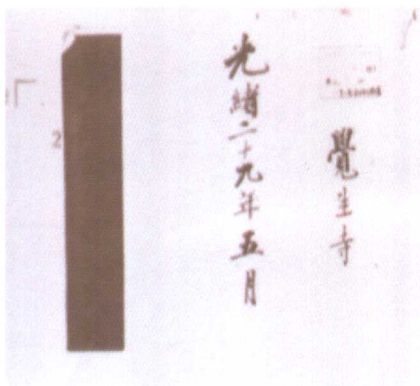 覺生寺
光緒二十九年五月
2